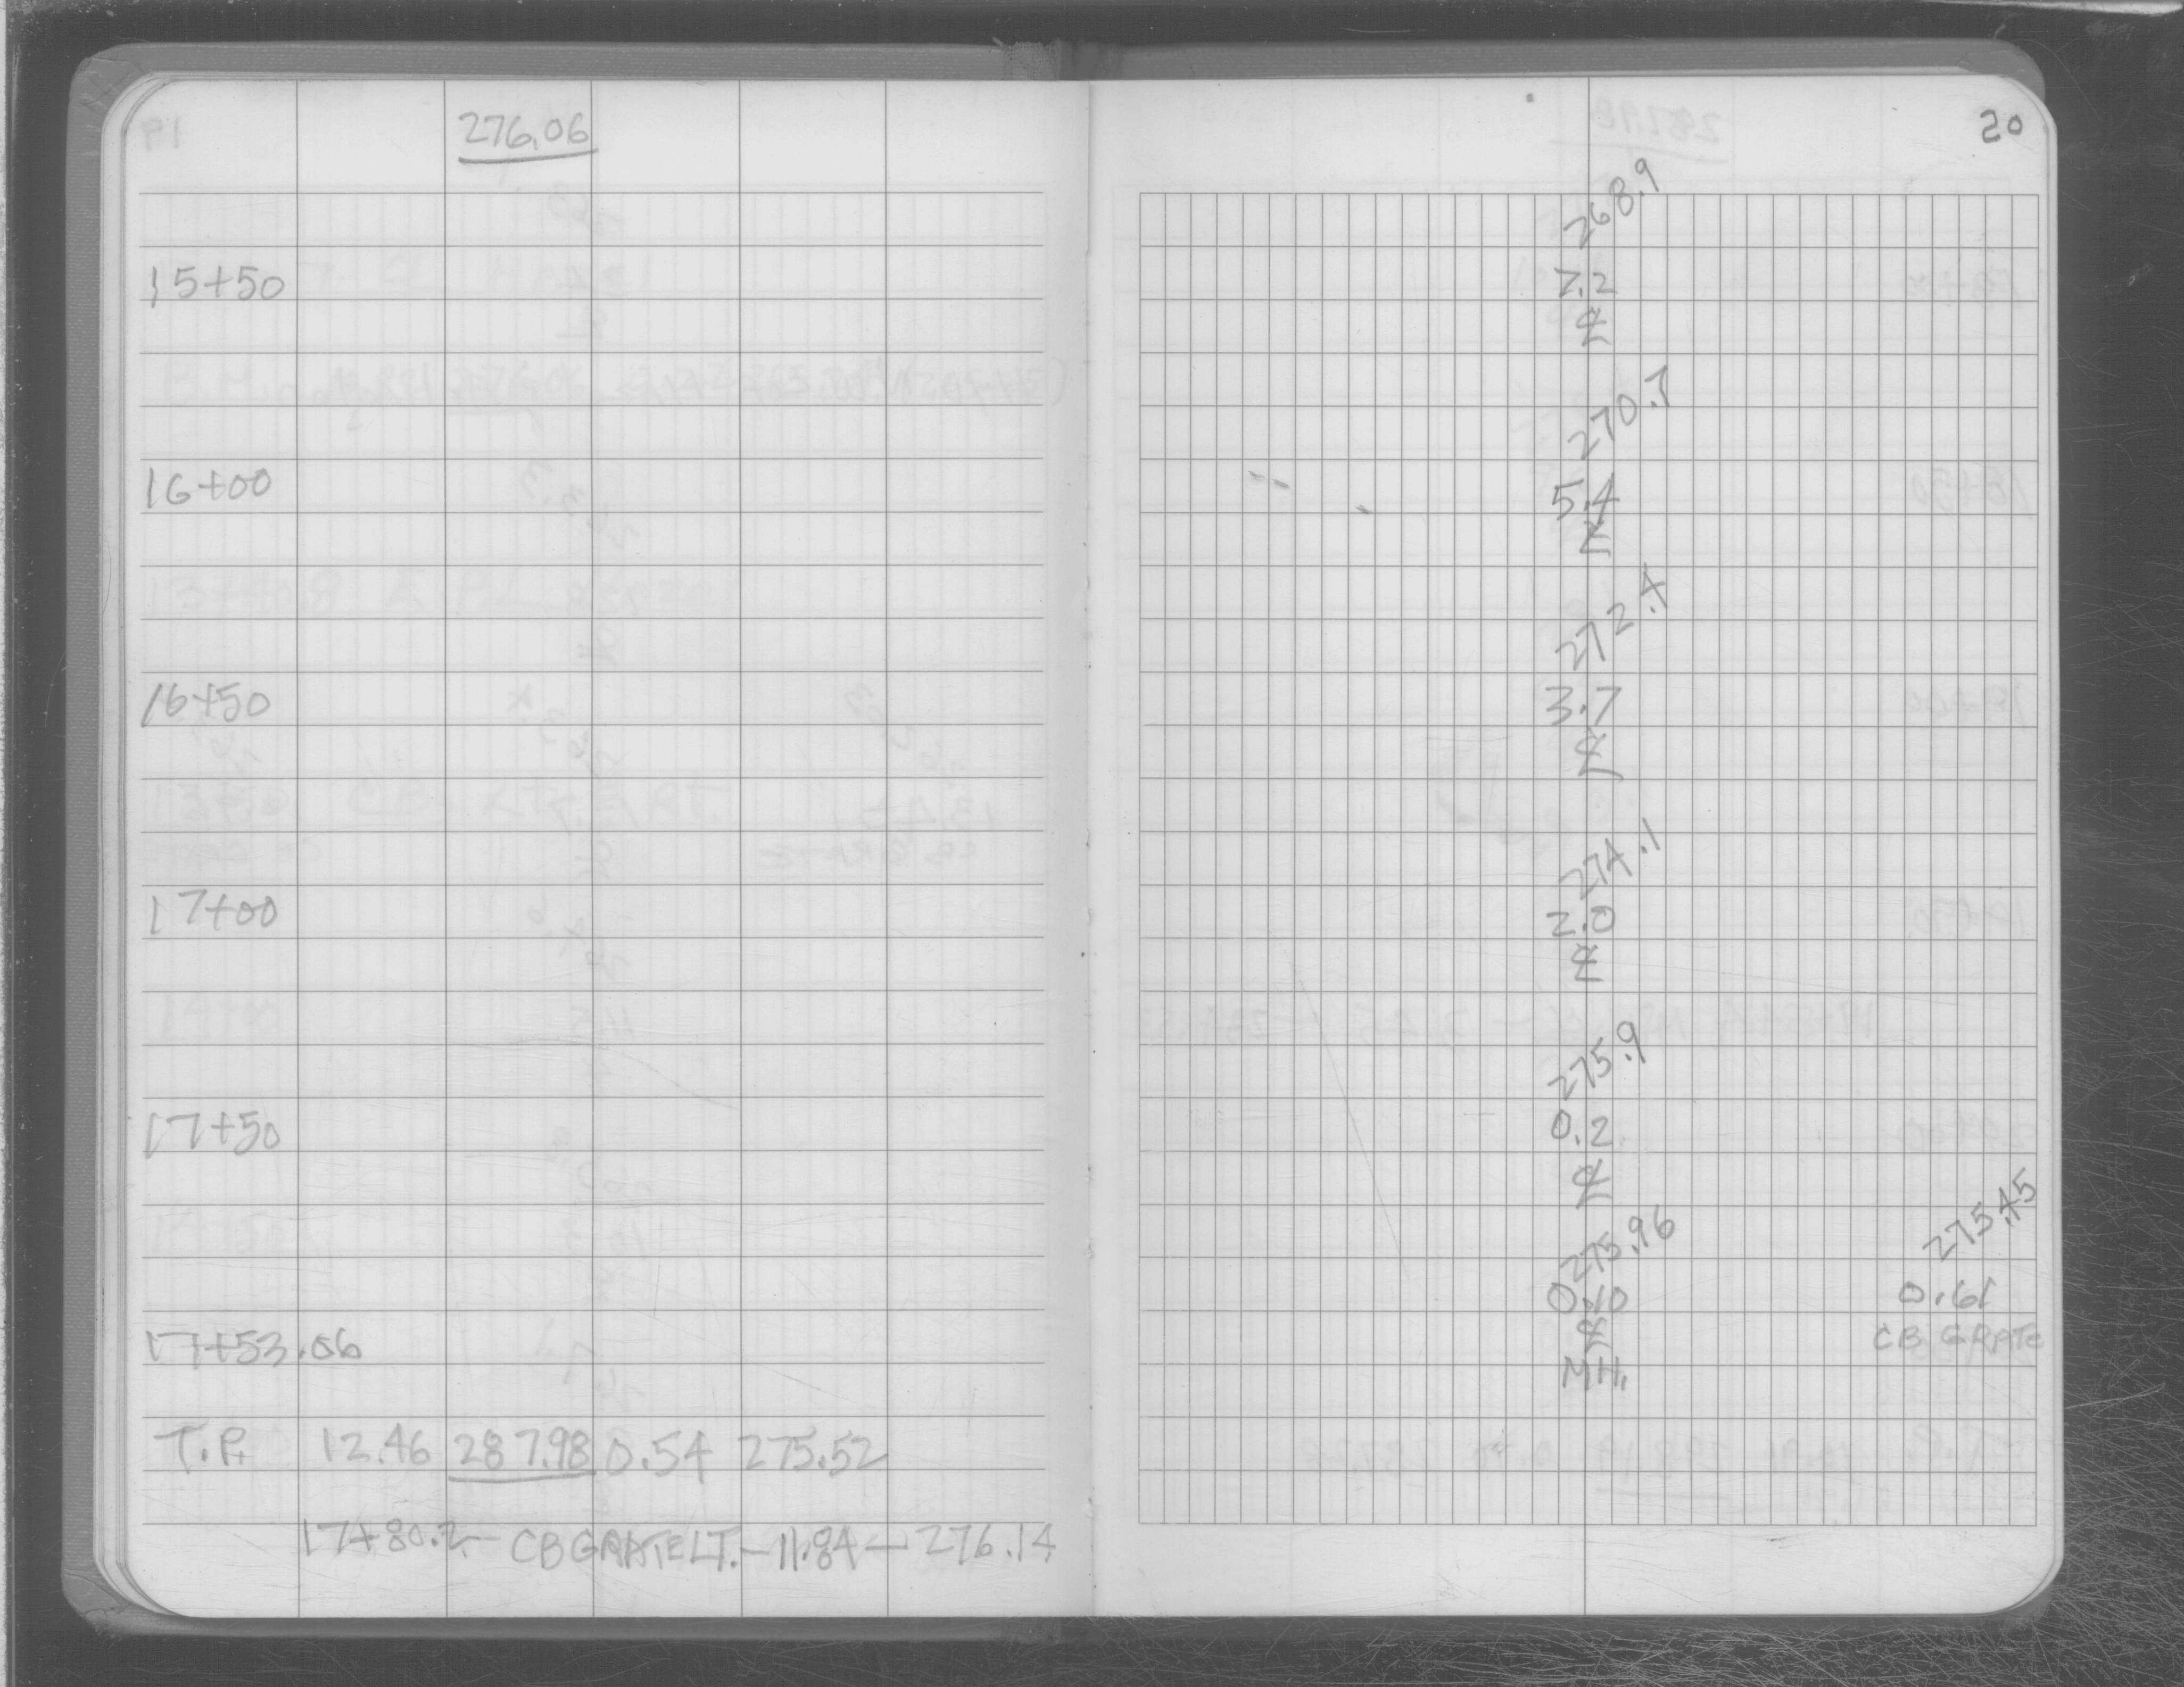 276.06
15+50
16+00
16+50
17+00
17+50
17+53.06
T.P. 12.46 287.98 0.54 275.52
17+80.2 — CB GRATE LT. — 11.84 — 276.14
20
268.9
7.2
℄
270.7
5.4
℄
272.4
3.7
℄
274.1
2.0
℄
275.9
0.2
℄
275.96 275.45
0.10 0.61
℄ CB GRATE
MH.